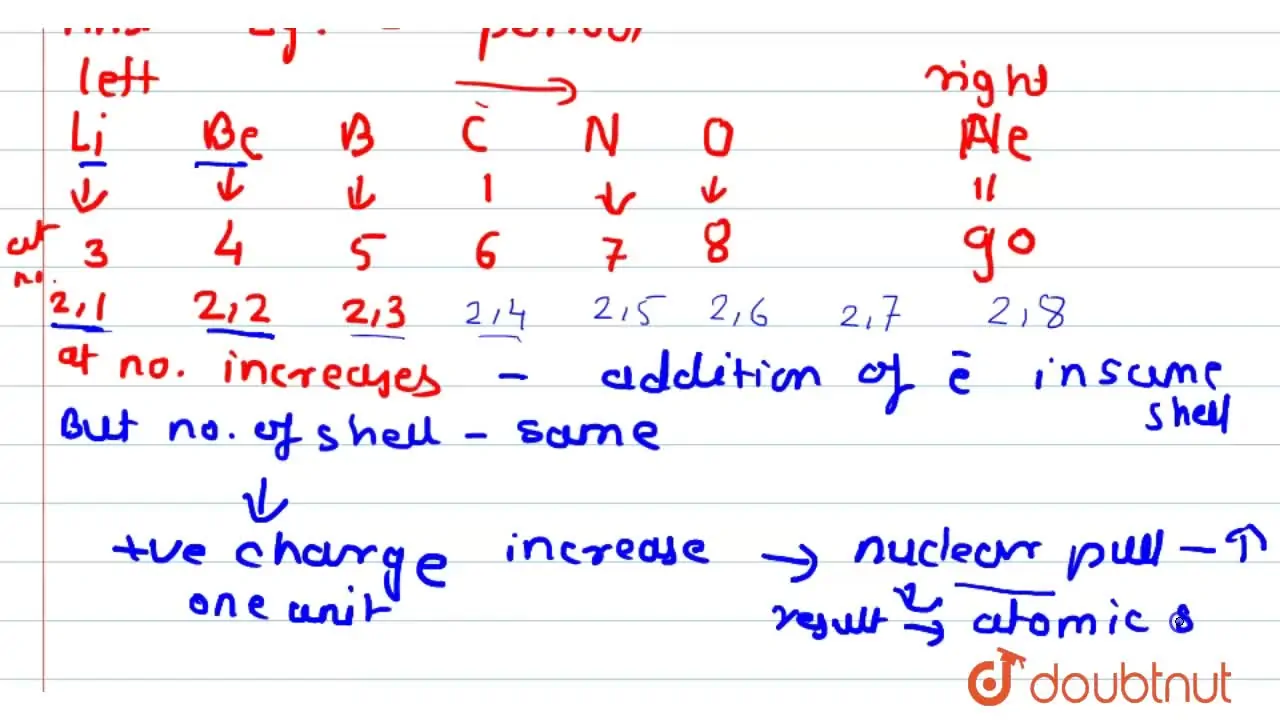 period,
left → right
Li Be B C N O Ne
↓ ↓ ↓ ı ↓ ↓ ıı
at no. 3 4 5 6 7 8 90
2,1 2,2 2,3 2,4 2,5 2,6 2,7 2,8
at no. increases - addition of ē in same shell
But no. of shell - same
↓
+ve charge increase → nuclear pull - ↑
one unit result → atomic s
doubtnut